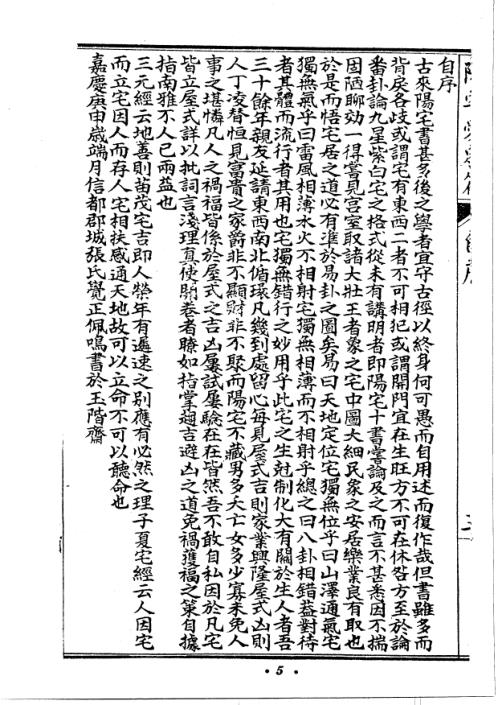 自序
古來陽宅書甚多後之學者宜守古徑以終身何可愚而自用述而復作哉但書雖多而
背戾各歧或謂宅有東西二者不可相犯或謂開門宜在生旺方不可在休咎方至於論
番卦論九星紫白宅之格式從未有講明者即陽宅十書嘗論及之而言不甚悉因不揣
固陋聊效一得嘗見宮室取諸大壯王者象之宅中圖大細民象之安居樂業良有取也
於是而悟宅居之道必有準於易卦之圖矣易曰天地定位宅獨無位乎曰山澤通氣宅
獨無氣乎曰雷風相薄水火不相射宅獨無相薄而不相射乎總之曰八卦相錯益對待
者其體而流行者其用也宅獨無錯行之妙用乎此宅之生尅制化大有關於生人者吾
三十餘年親友延請東西南北循環凡幾到處留心每見屋式吉則家業興隆屋式凶則
人丁凌替恒見富貴之家爵非不顯財非不聚而陽宅不藏男多夭亡女多少寡未免人
事之堪憐凡人之禍福皆係於屋式之吉凶屢試屢驗在在皆然吾不敢自私因於凡宅
皆立屋式詳以批詞言淺理真使開卷者瞭如指掌趨吉避凶之道免禍獲福之策自據
指南雅不人己兩益也
三元經云地善則苗茂宅吉即人榮年有遲速之別應有必然之理子夏宅經云人因宅
而立宅因人而存人宅相扶感通天地故可以立命不可以聽命也
嘉慶庚申歲端月信都郡城張氏覺正佩鳴書於玉階齋
• 5 •